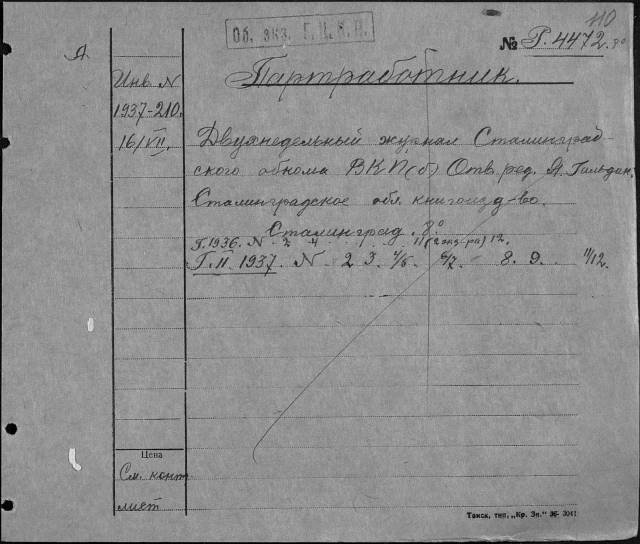 110
Об. экз. Г.Ц.К.П.
№ Г.4472. 8°
Я
Инв. N
1937-210.
16/VII.
Партработник.
Двухнедельный журнал Сталинград-
ского обкома ВКП(б) Отв. ред. Я. Гальдин.
Сталинградское обл. книгоизд-во.
Сталинград. 8°
Г. 1936. N 2 4 11 (2 экз-ра) 12.
Г. II. 1937. N 2 3. 4/5 6/7 8. 9. 11/12.
Цена
См. конт
лист
Томск, тип. „Кр. Зн." Ж- 3041